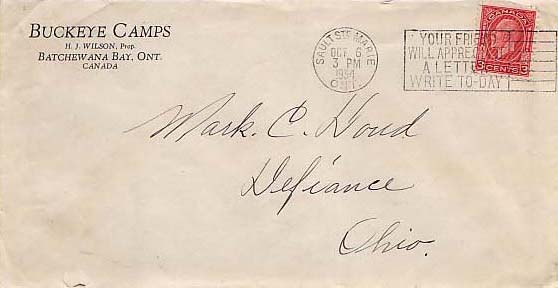 BUCKEYE CAMPS
H. J. WILSON, Prop.
BATCHEWANA BAY, ONT.
CANADA
SAULT STE MARIE
OCT 6
3 PM
1934
ONT.
YOUR FRIEND
WILL APPRE
A LETT
WRITE TO-DAY
CANADA
3 CENTS 3
Mark. C. Houd
Defiance
Ohio.